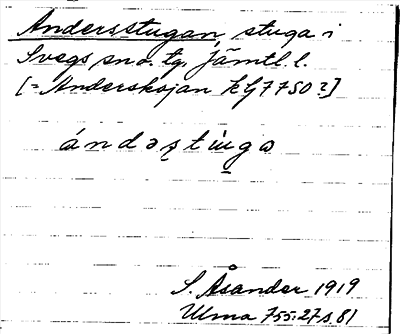 Andersstugan, stuga i
Svegs sn o. tg. Jämtl. l.
[= Anderskojan kg 7750?]
ándəştùga
S. Åsander 1919
Ulma 755:27 s. 81